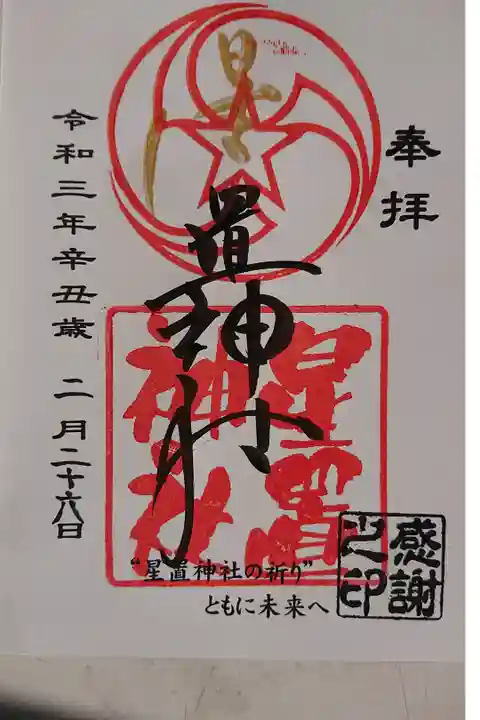 奉拝
星置神社
星置神社
令和三年辛丑歳 二月二十六日
感謝之印
“星置神社の祈り”
ともに未来へ